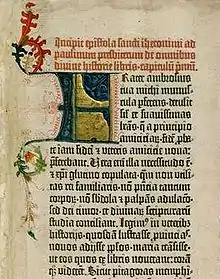 Incipit epistola sancti iheronimi ad
paulinum presbiterum de omnibus
divine historie libris. capitulū p̄mū.
Frater ambrosius
tua michi munuscula
pferens. detulit
sif et suavissimas
lras. q̄ a principio
amiciciaȝ. fidē
te iam fidei et veteris amicicie nova
et ēi glutino copulata. quā non utilitas
rei familiaris. nō pn̄cia tantum
corporȝ. nō subdola et palpās adulacō.
sed dei timor. et divinaȝ scripturarȝ
studia conciliant. Legim⁹ in veteribȝ
historijs. quosdā lustrasse. pvincias.
novos adijsse pplos. maria trāsisse.
ut eos quos ex libris noverant: corā
qȝ viderēt. Sicut pitagoras memphi